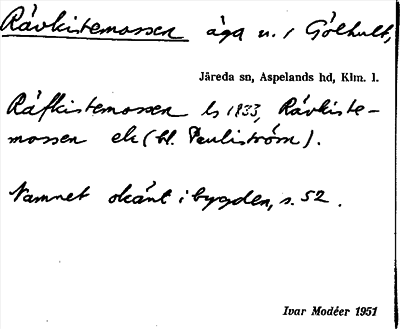 Rävkistemossen äga n. 1 Gölhult,
Järeda sn, Aspelands hd, Klm. l.
Räfkistemossen ls 1833, Rävkiste-
mossen ek (bl. Pauliström).
Namnet okänt i bygden, s. 52.
Ivar Modéer 1951